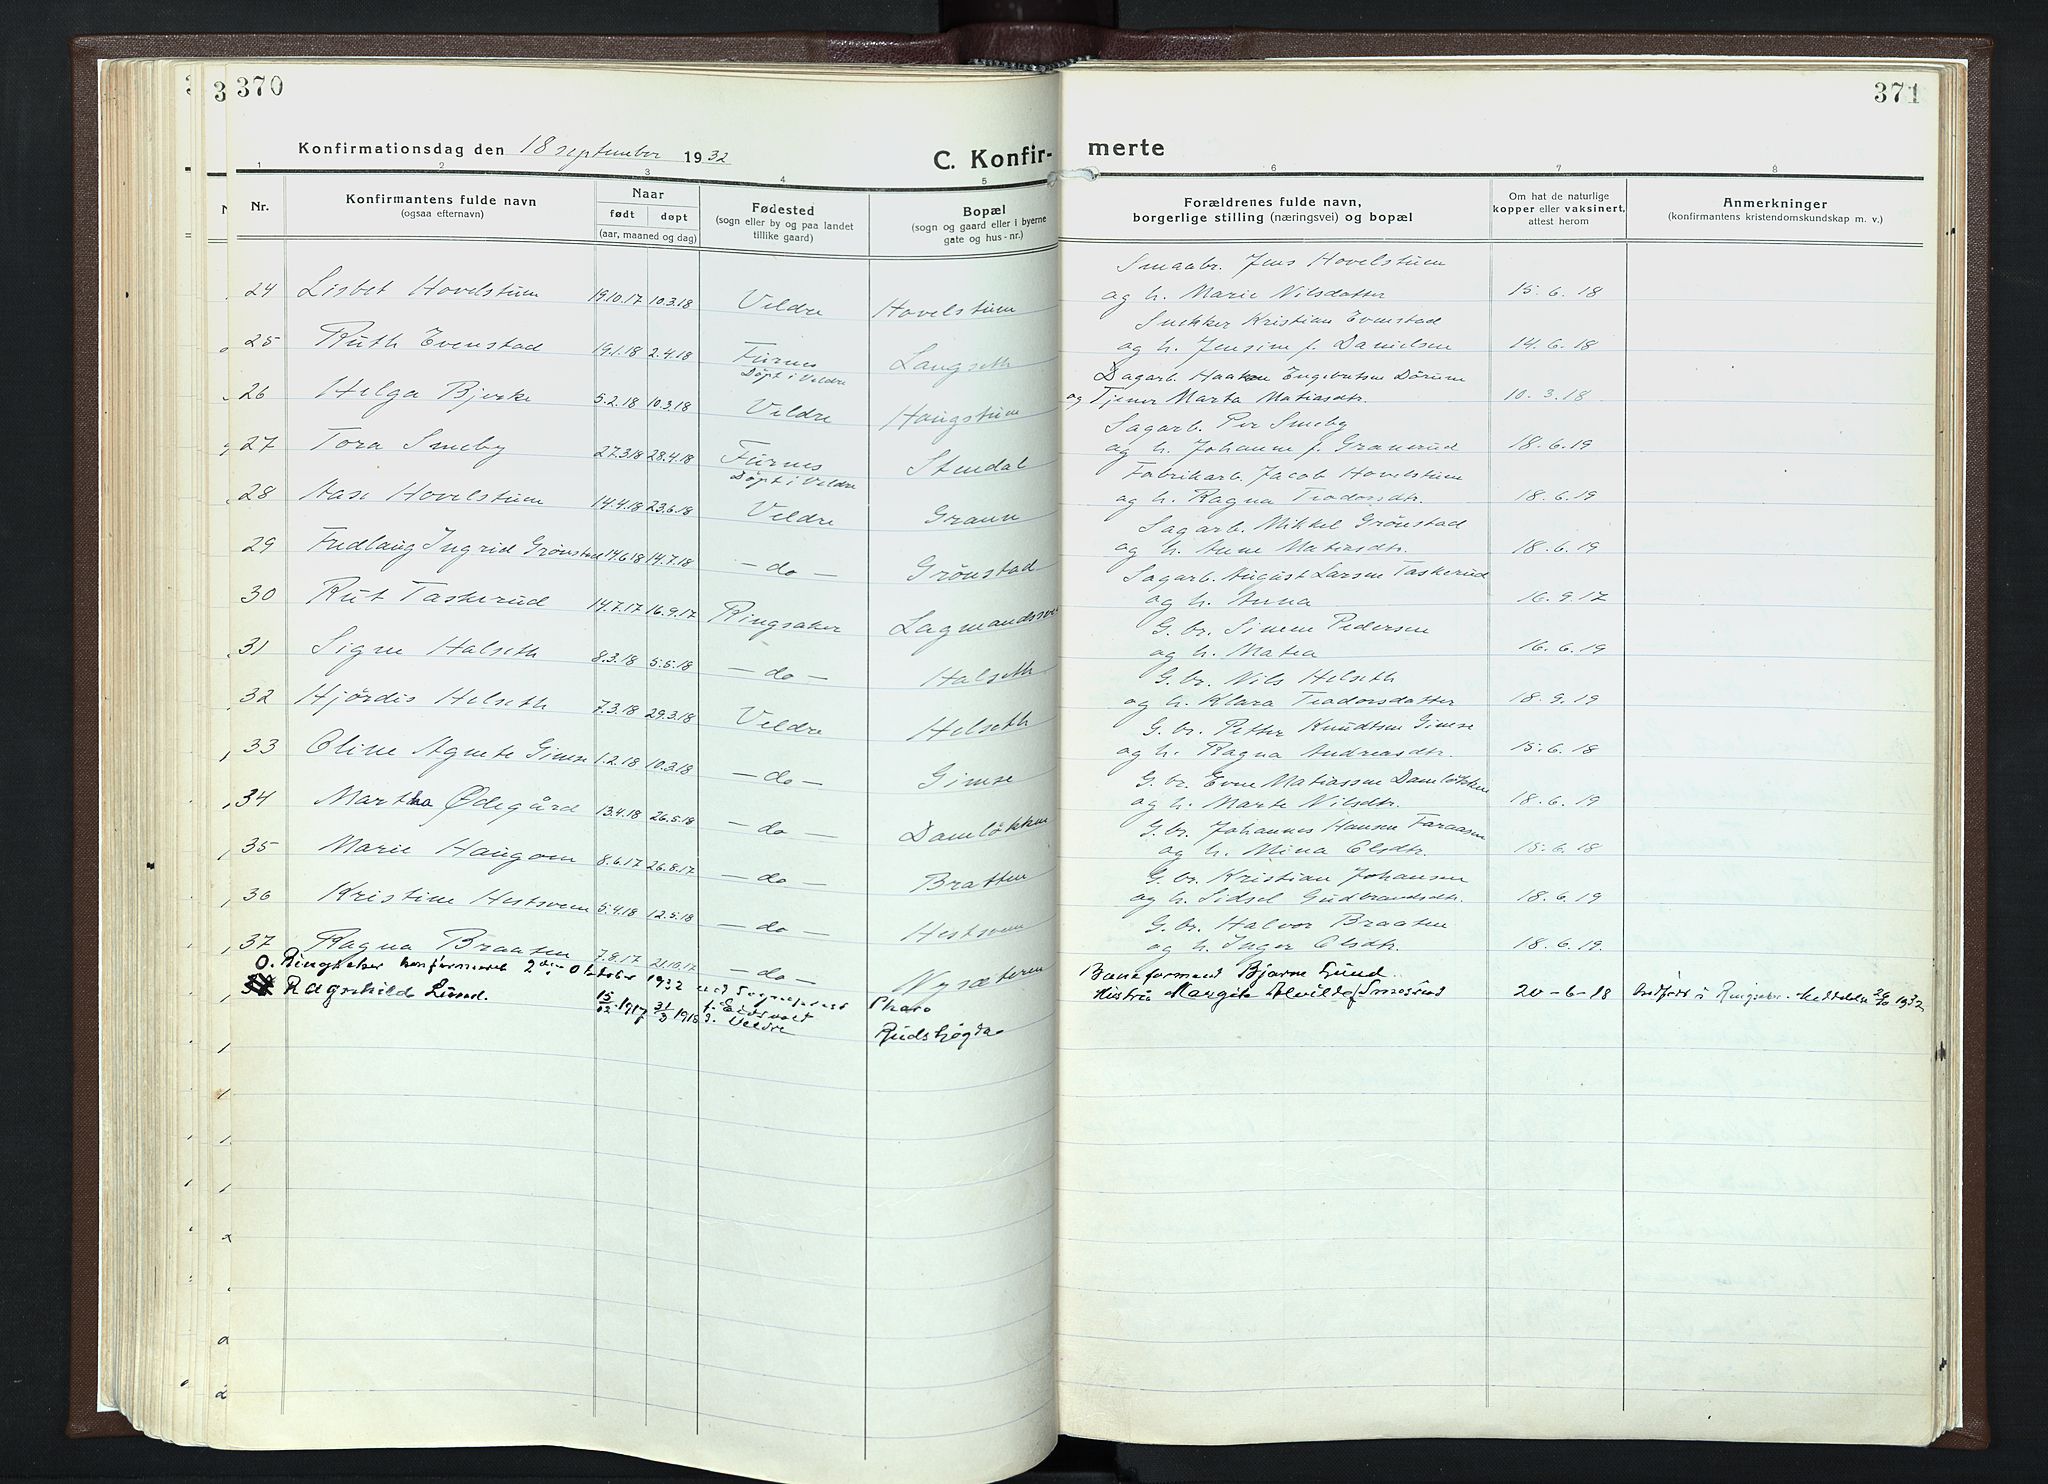 370
371
Konfirmationsdag den 18 september 1932
C. Konfir-
merte
1 2 3 4 5 6 7 8
Nr.
Konfirmantens fulde navn
(ogsaa efternavn)
Naar
født døpt
(aar, maaned og dag)
Fødested
(sogn eller by og paa landet
tillike gaard)
Bopæl
(sogn og gaard eller i byerne
gate og hus-nr.)
Forældrenes fulde navn,
borgerlige stilling (næringsvei) og bopæl
Om hat de naturlige
kopper eller vaksinert,
attest herom
Anmerkninger
(konfirmantens kristendomskundskap m. v.)
Smaabr. Jens Hovelstuen
24 Lisbet Hovelstuen 19.10.17 10.3.18 Veldre Hovelstuen og h. Marie Nilsdatter 15.6.18
Snekker Kristian Evenstad
25 Ruth Evenstad 19.1.18 2.4.18 Furnes Langseth og h. Jensine f. Danielsen 14.6.18
Døpt i Veldre
Dagarb. Haaken Engebretsen Dørum
26 Helga Bjerke 5.2.18 10.3.18 Veldre Haugstuen og Tjener Marta Matiasdtr. 10.3.18
Sagarb. Per Smeby
27 Tora Smeby 27.3.18 28.4.18 Furnes Stendal og h. Johanne f. Granerud 18.6.19
Døpt i Veldre
Fabrikarb. Jacob Hovelstuen
28 Aase Hovelstuen 14.4.18 23.6.18 Veldre Graun og h. Ragna Teodorsdtr. 18.6.19
Sagarb. Mikkel Grønstad
29 Fredlaug Ingrid Grønstad 14.6.18 14.7.18 – do – Grønstad og h. Anne Matiasdtr. 18.6.19
Sagarb. August Larsen Taskerud
30 Rut Taskerud 14.7.17 16.9.17 Ringsaker og h. Anna 16.9.17
G. br. Simen Pedersen
31 Signe Halseth 8.3.18 5.5.18 – do – Halseth og h. Matea 16.6.19
G. br. Nils Helseth
32 Hjørdis Helseth 7.3.18 29.3.18 Veldre Helseth og h. Klara Teodorsdatter 18.9.19
G. br. Petter Knudtsen Gimse
33 Oline Agnete Gimse 1.2.18 10.3.18 – do – Gimse og h. Ragna Andreasdtr. 15.6.18
G. br. Even Matiassen Damløkken
34 Martha Ødegård 13.4.18 26.5.18 – do – Damløkken og h. Marte Nilsdtr. 18.6.19
G. br. Johannes Hansen
35 Marie Haugom 8.6.17 26.8.17 – do – Bratten og h. Mina Olsdtr. 15.6.18
G. br. Kristian Johansen
36 Kristine Hestsveen 5.4.18 12.5.18 – do – Hestsveen og h. Sidsel Gudbrandsdtr. 18.6.19
G. br. Halvor Braaten
37 Ragna Braaten 7.8.17 21.10.17 – do – Nysæteren og h. Inger Olsdtr. 18.6.19.
0. Ringsaker konfirmeret 2den Oktober 1932 ved Sognepræst
Baneformand Bjarne Lund.
Ragnhild Lund. 15/12 1917 31/3 1918 f. Eidsvold
d. Veldre
Rudshøgda
Hustru Margit Alvilde f. Smesrud 20-6-18 Indført i Ringsaker. Meddelt 26/10 1932